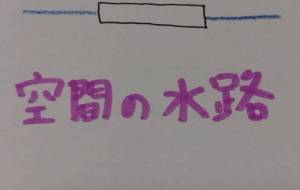 空間の水路